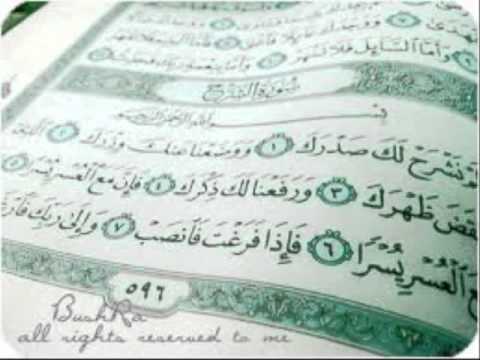 وَأَمَّا السَّآئِلَ فَلَا تَنْهَرْ
سُورَةُ الشَّرْحِ
بِسْمِ اللَّهِ الرَّحْمَٰنِ الرَّحِيمِ
نَشْرَحْ لَكَ صَدْرَكَ ١ وَوَضَعْنَا عَنكَ وِزْرَكَ ٢ الَّذِي
ظَهْرَكَ ٣ وَرَفَعْنَا لَكَ ذِكْرَكَ ٤ فَإِنَّ مَعَ الْعُسْرِ يُسْرًا ٥
الْعُسْرِ يُسْرًا ٦ فَإِذَا فَرَغْتَ فَانصَبْ ٧ وَإِلَىٰ رَبِّكَ
٥٩٦
BushRa
all rights reserved to me